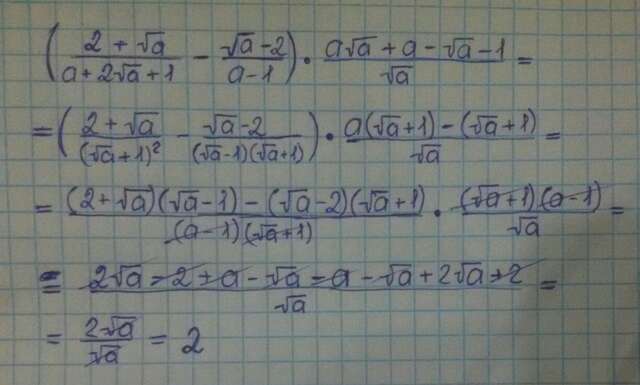 (2 + √a / a + 2√a + 1 − √a − 2 / a − 1) · a√a + a − √a − 1 / √a =
= (2 + √a / (√a + 1)² − √a − 2 / (√a − 1)(√a + 1)) · a(√a + 1) − (√a + 1) / √a =
= (2 + √a)(√a − 1) − (√a − 2)(√a + 1) / (a − 1)(√a + 1) · (√a + 1)(a − 1) / √a =
= 2√a − 2 + a − √a − a − √a + 2√a + 2 / √a =
= 2√a / √a = 2